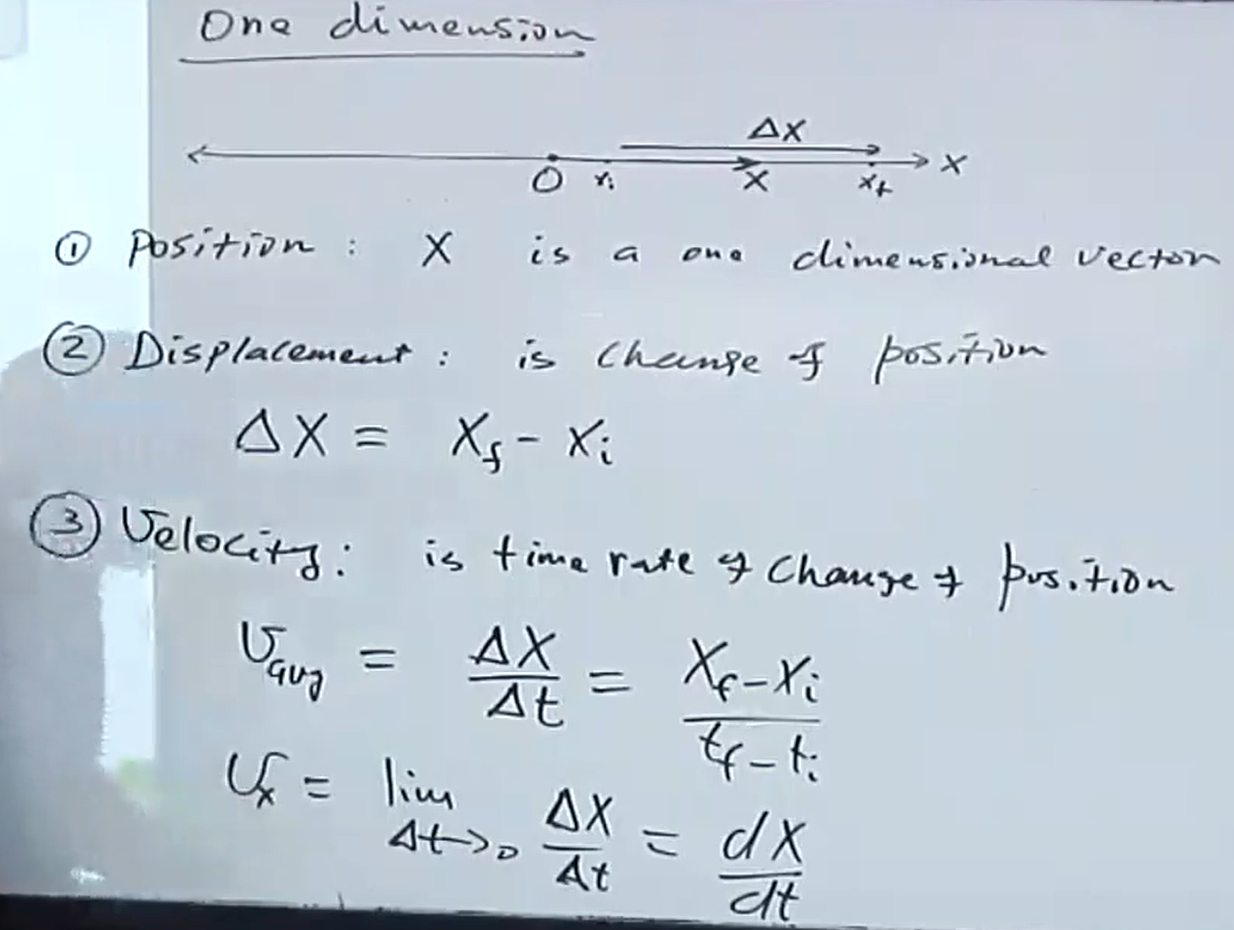 One dimension
ΔX
O xi X xf X
① Position : X is a one dimensional vector
② Displacement : is change of position
ΔX = Xf - Xi
③ Velocity : is time rate of change of position
Vavg = ΔX/Δt = Xf - Xi / tf - ti
Vx = lim Δt→0 ΔX/Δt = dX/dt